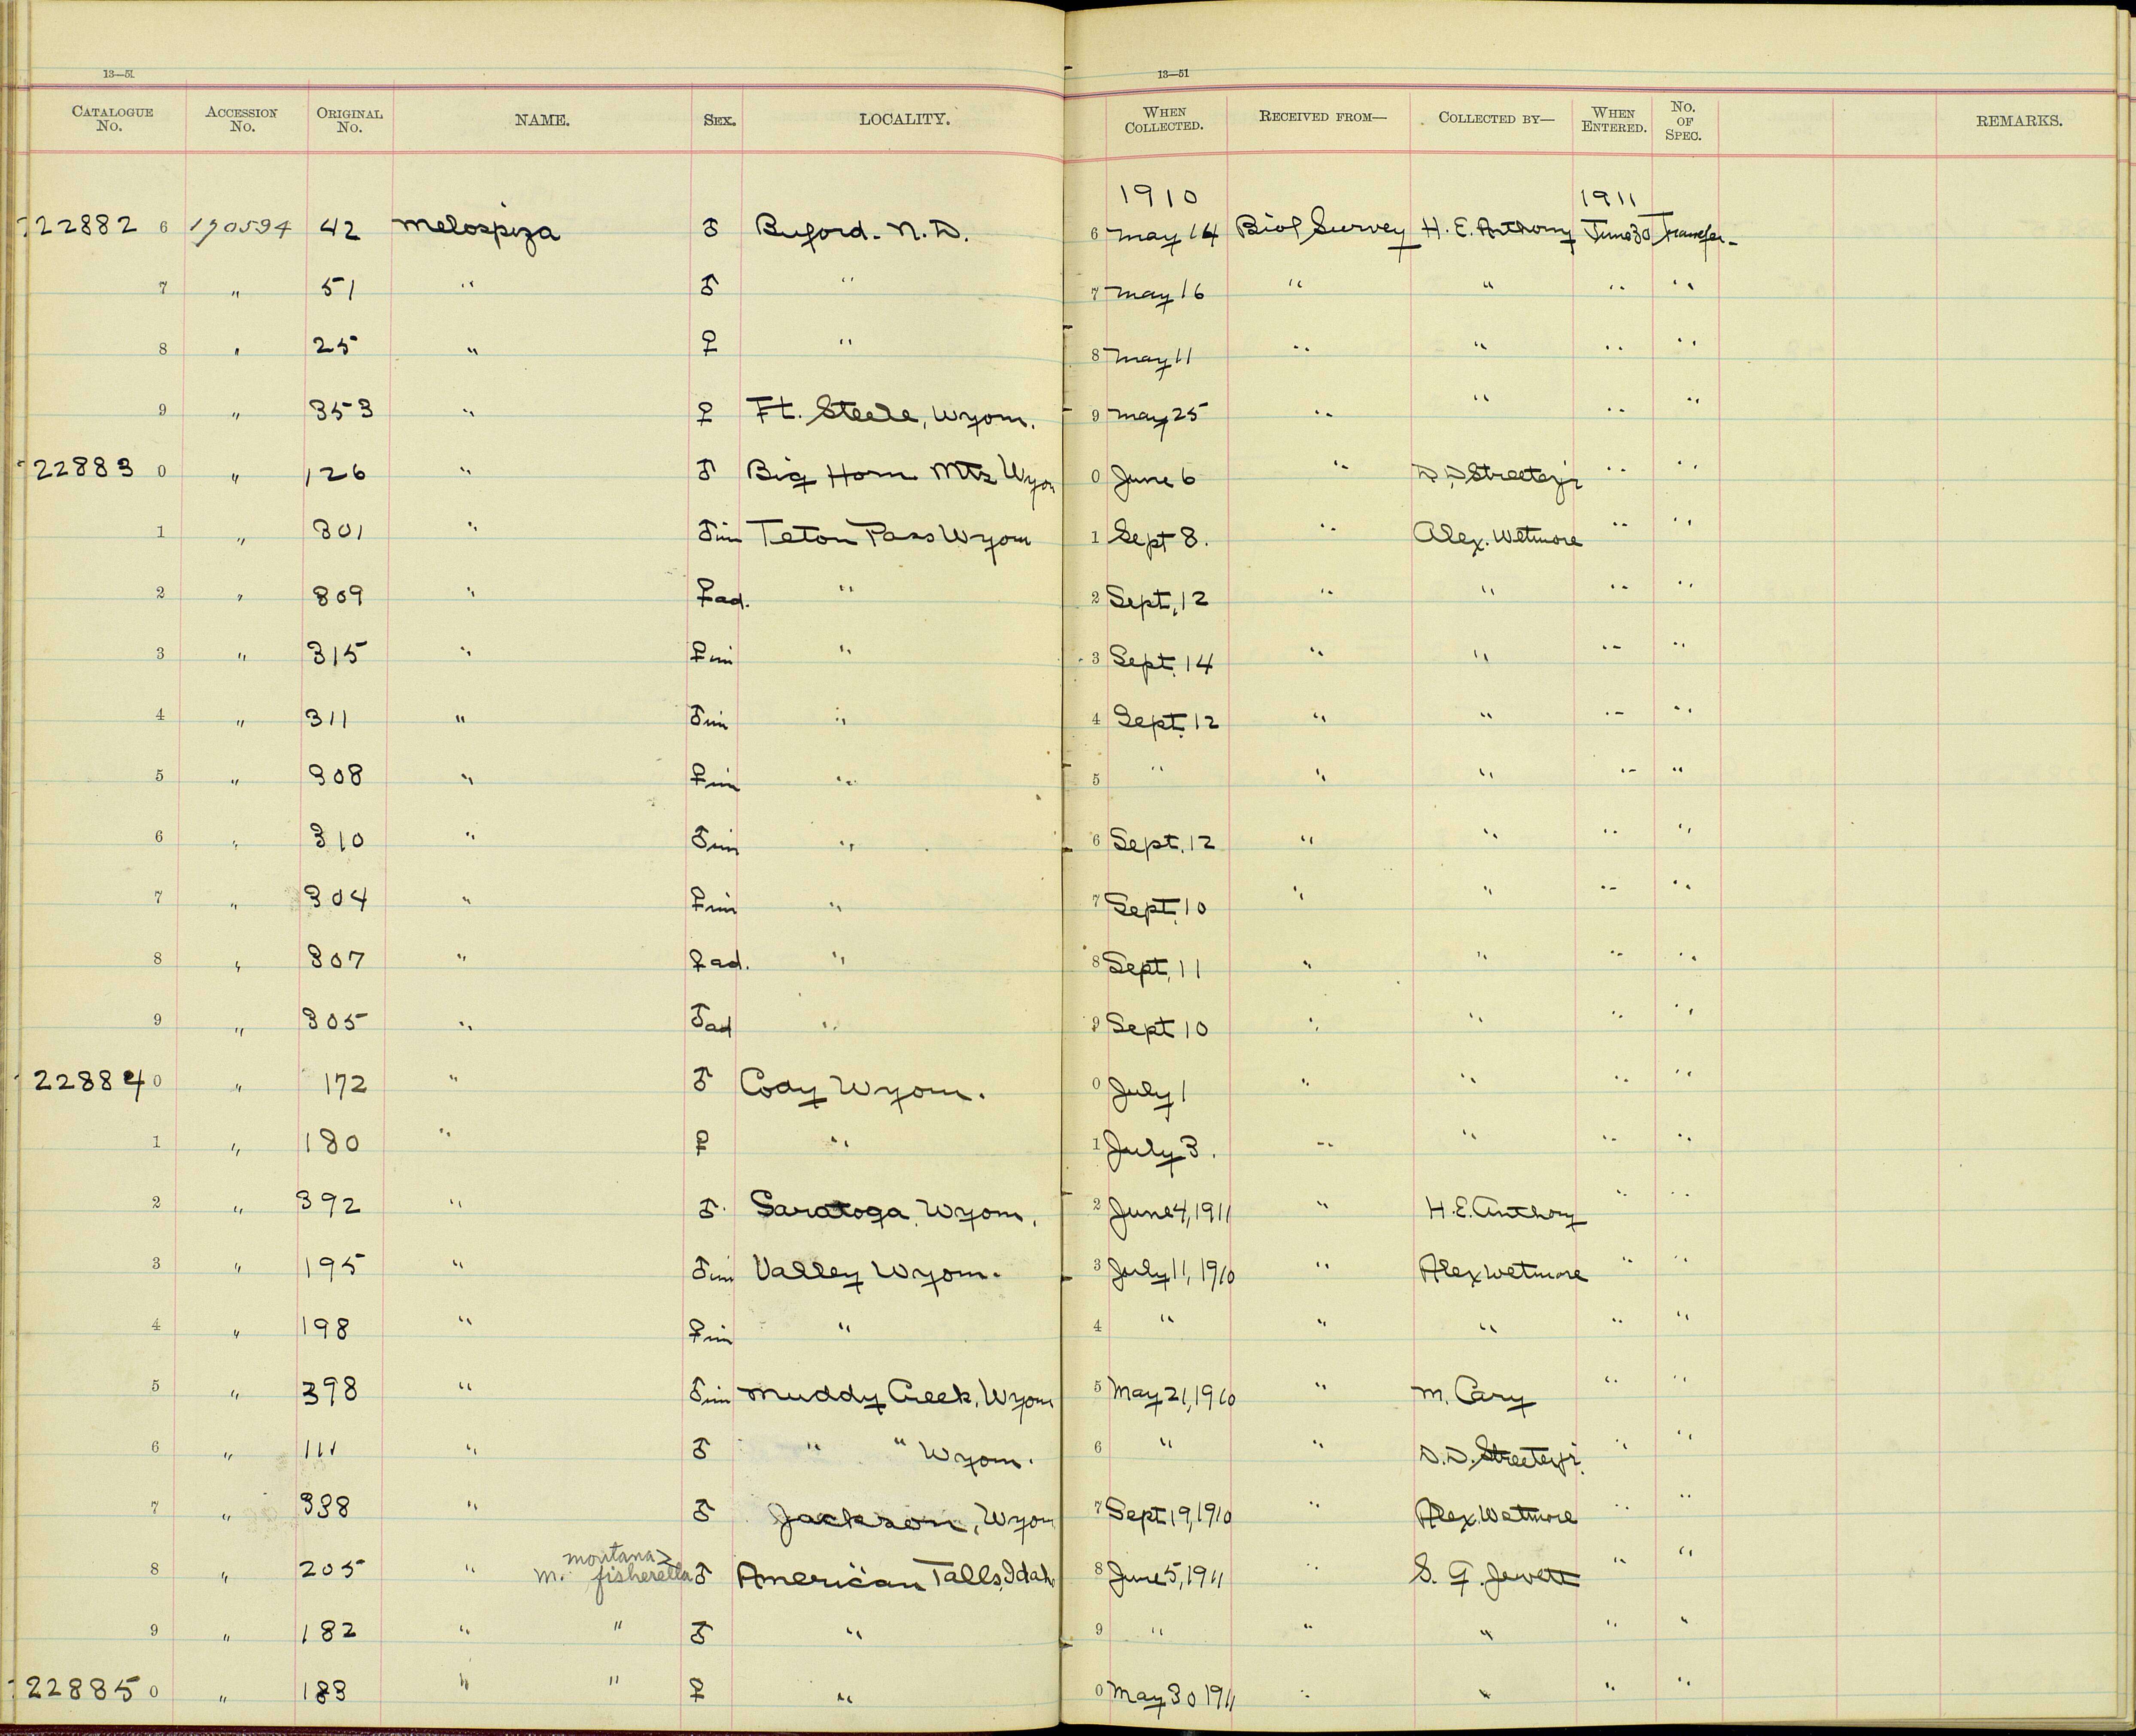 13—51 13—51
CATALOGUE No. ACCESSION No. ORIGINAL No. NAME. SEX. LOCALITY. WHEN COLLECTED. RECEIVED FROM— COLLECTED BY— WHEN ENTERED. No. OF SPEC. REMARKS.
1910 1911
22882 6 190594 42 Melospiza ♂ Buford. N.D. 6 May 14 Biol Survey H. E. Anthony June 30 Transfer
7 " 51 " ♂ " 7 May 16 " " " "
8 " 25 " ♀ " 8 May 11 " " " "
9 " 353 " ♀ Ft. Steele, Wyom. 9 May 25 " " " "
22883 0 " 126 " ♂ Big Horn Mts Wyom 0 June 6 " D. D. Streeter jr " "
1 " 301 " ♂ im Teton Pass Wyom 1 Sept 8. " Alex. Wetmore " "
2 " 309 " ♀ ad. " 2 Sept. 12 " " " "
3 " 315 " ♀ im " 3 Sept. 14 " " " "
4 " 311 " ♂ im " 4 Sept. 12 " " " "
5 " 308 " ♀ im " 5 " " " " "
6 " 310 " ♂ im " 6 Sept. 12 " " " "
7 " 304 " ♀ im " 7 Sept. 10 " " " "
8 " 307 " ♀ ad. " 8 Sept. 11 " " " "
9 " 305 " ♂ ad " 9 Sept 10 " " " "
22884 0 " 172 " ♂ Cody Wyom. 0 July 1 " " " "
1 " 180 " ♀ " 1 July 3. " " " "
2 " 392 " ♂. Saratoga, Wyom. 2 June 4, 1911 " H. E. Anthony " "
3 " 195 " ♂ im Valley Wyom. 3 July 11, 1910 " Alex Wetmore " "
4 " 198 " ♀ im " 4 " " " " "
5 " 398 " ♂ im Muddy Creek, Wyom 5 May 21, 1910 " M. Cary " "
6 " 111 " ♂ " " Wyom. 6 " " D. D. Streeter jr. " "
7 " 338 " ♂ Jackson, Wyom 7 Sept 19, 1910 " Alex. Wetmore " "
montana >
8 " 205 " m. fisherella ♂ American Falls, Idah 8 June 5, 1911 " S. G. Jewett " "
9 " 182 " " ♂ " 9 " " " " "
22885 0 " 183 " " ♀ " 0 May 30 1911 " " " "